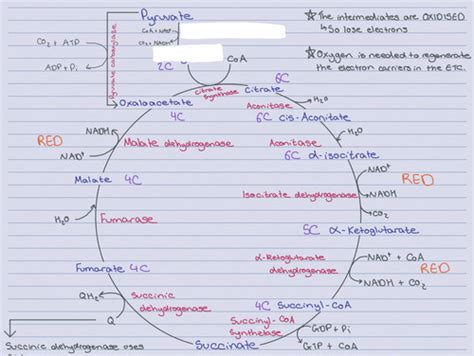 Pyruvate
CO2 + ATP
ADP + Pi
Pyruvate carboxylase
CoA + NAD+
CO2 + NADH
2C
CoA
☆ The intermediates are OXIDISED
↳ So lose electrons
☆ Oxygen is needed to regenerate
the electron carriers in the ETC.
6C
Citrate
Citrate synthase
Oxaloacetate
4C
Aconitase
H2O
6C cis-Aconitate
RED
NADH
NAD+
Malate dehydrogenase
Aconitase
H2O
6C α-isocitrate
Malate 4C
NAD+
RED
Isocitrate dehydrogenase
NADH
CO2
H2O
Fumarase
5C α-Ketoglutarate
Fumarate 4C
α-Ketoglutarate
dehydrogenase
NAD+ + CoA
RED
NADH + CO2
QH2
Q
Succinic
dehydrogenase
4C Succinyl-CoA
Succinyl-CoA
Synthelase
GDP + Pi
GTP + CoA
Succinate
Succinic dehydrogenase uses